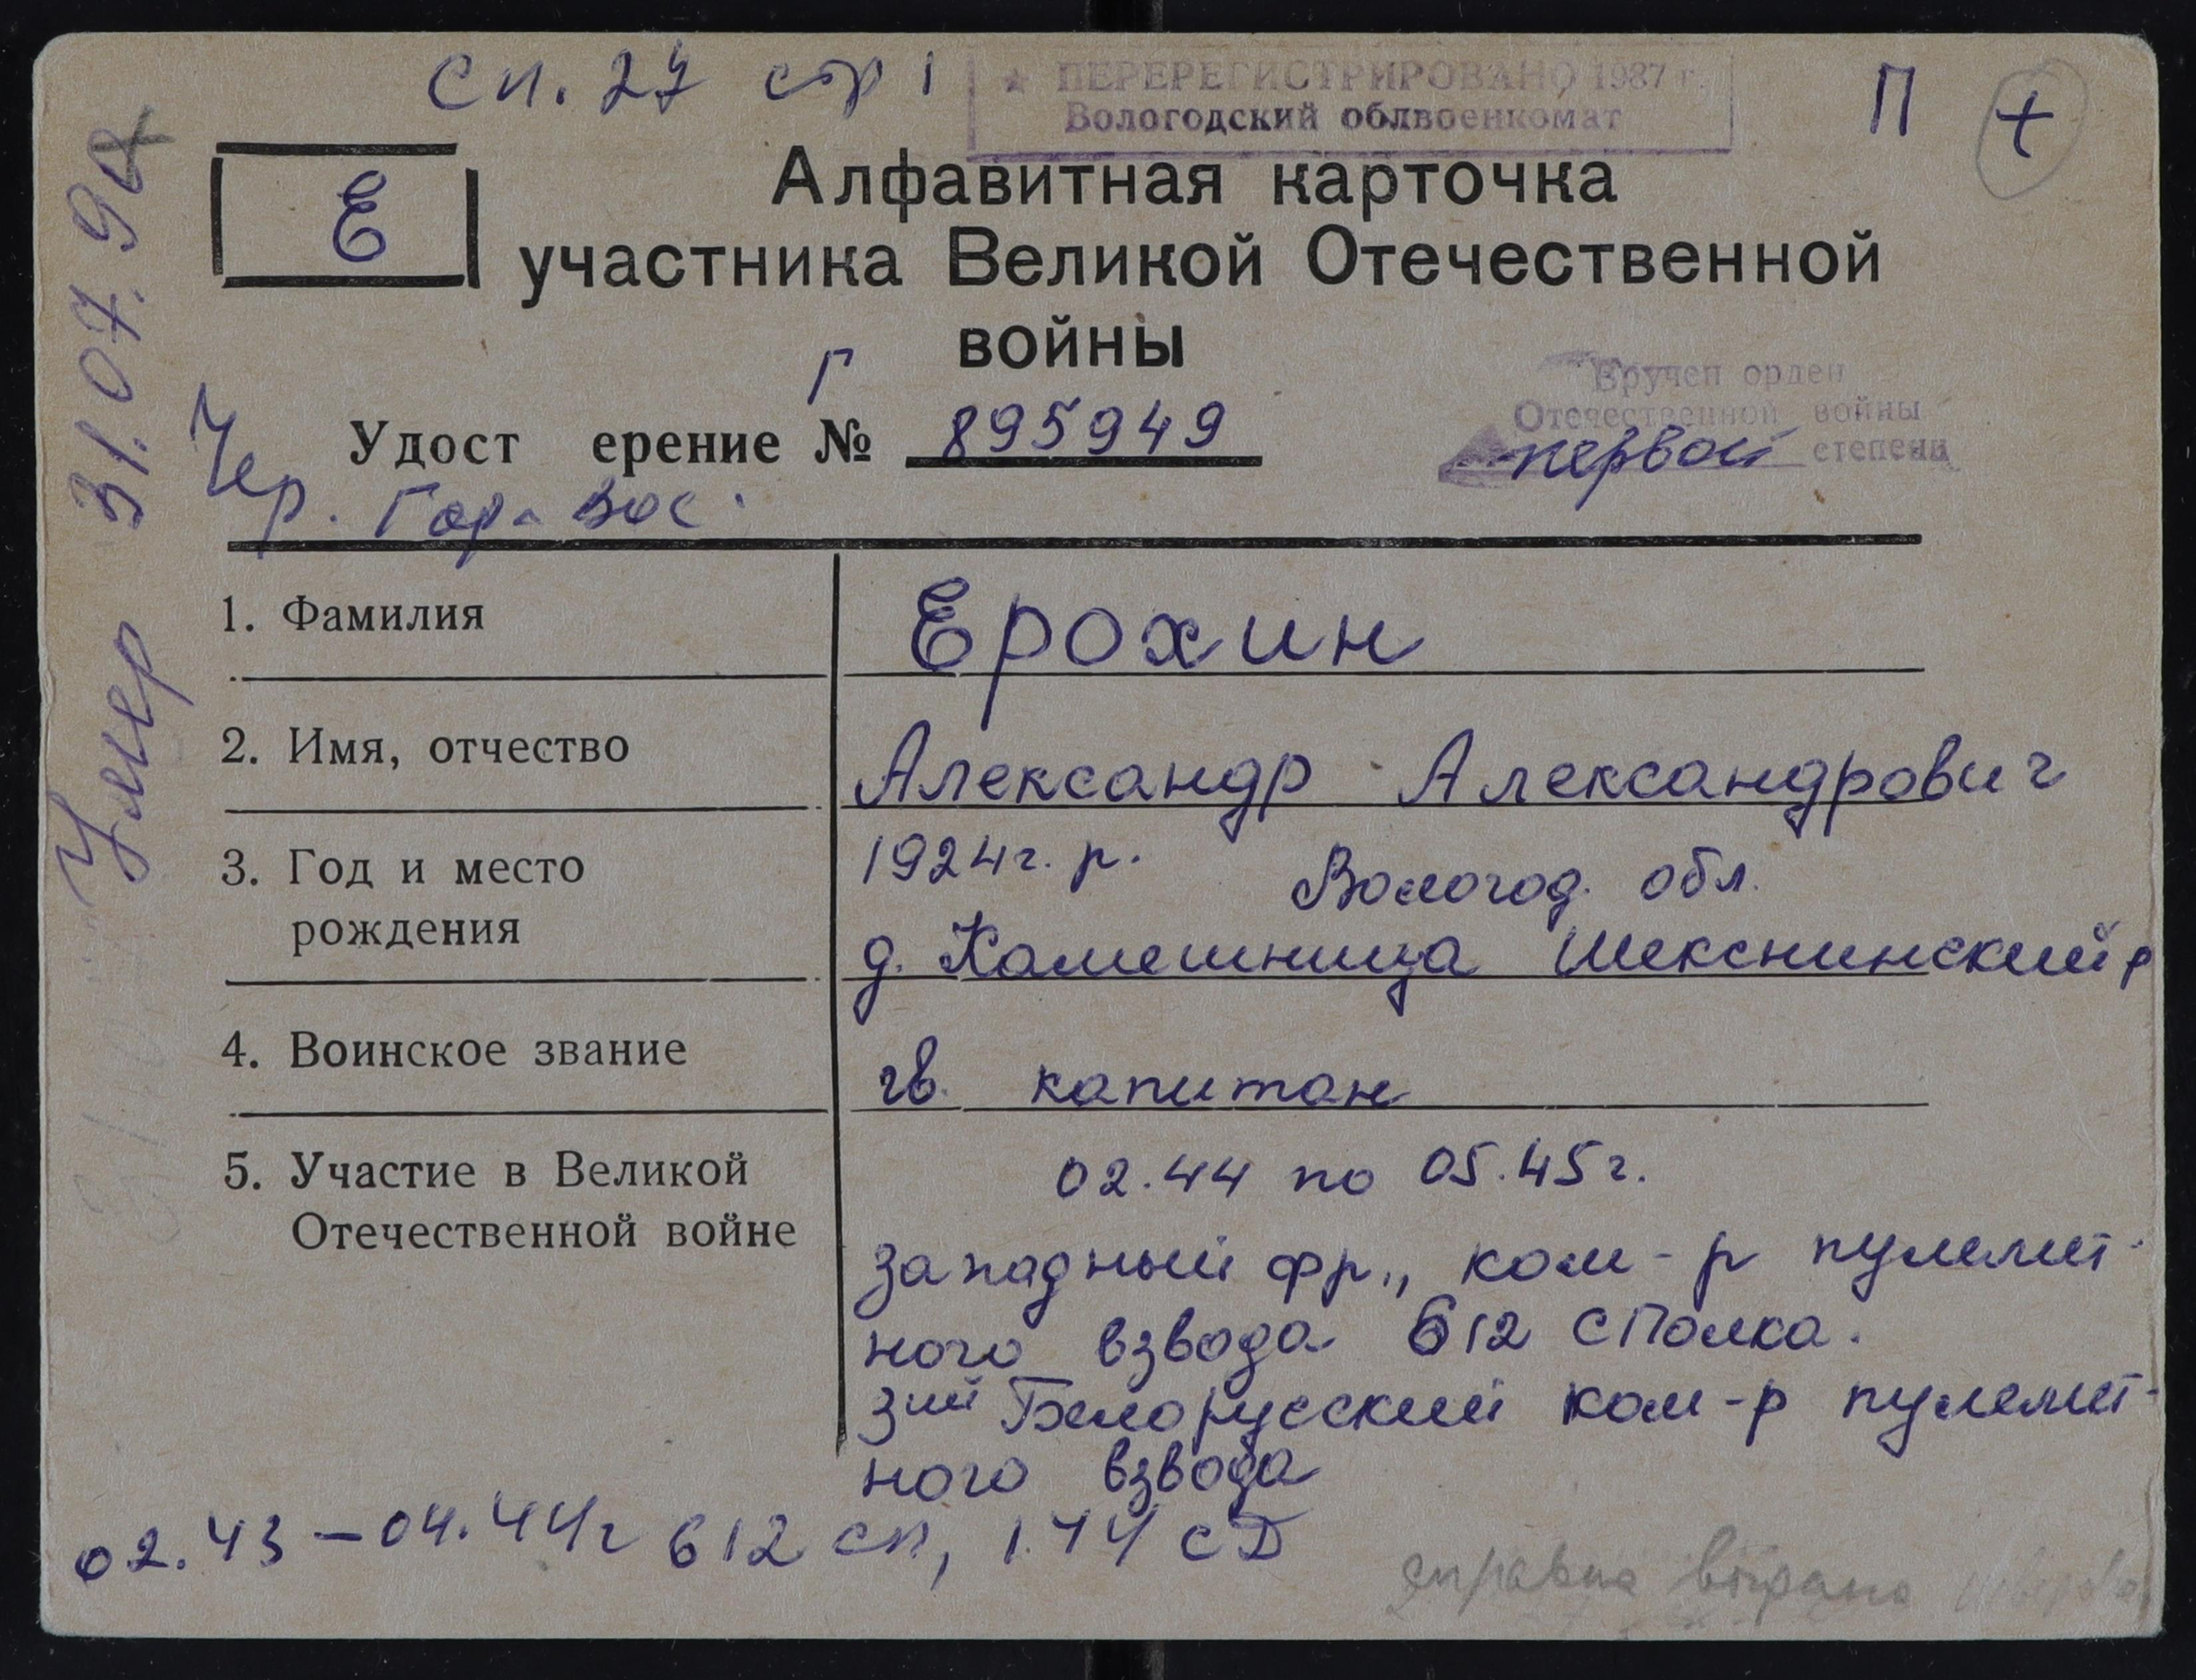 сп. 27 стр 1
★ ПЕРЕРЕГИСТРИРОВАНО 1987 г.
Вологодский облвоенкомат
П +
Е
Алфавитная карточка
участника Великой Отечественной
войны
Г
Удост ерение № 895949
Чер. Гор. вос.
Вручен орден
Отечественной войны
первой степени
Умер 31.07.94
1. Фамилия
Ерохин
2. Имя, отчество
Александр Александрович
3. Год и место
рождения
1924г. р. Вологод. обл.
д. Камешница Шекснинский р
4. Воинское звание
гв. капитан
5. Участие в Великой
Отечественной войне
02.44 по 05.45г.
Западный фр., ком-р пулемет-
ного взвода 612 с Полка.
3ий Белорусский ком-р пулемет-
ного взвода
02.43 – 04.44г 612 сп, 144 сД